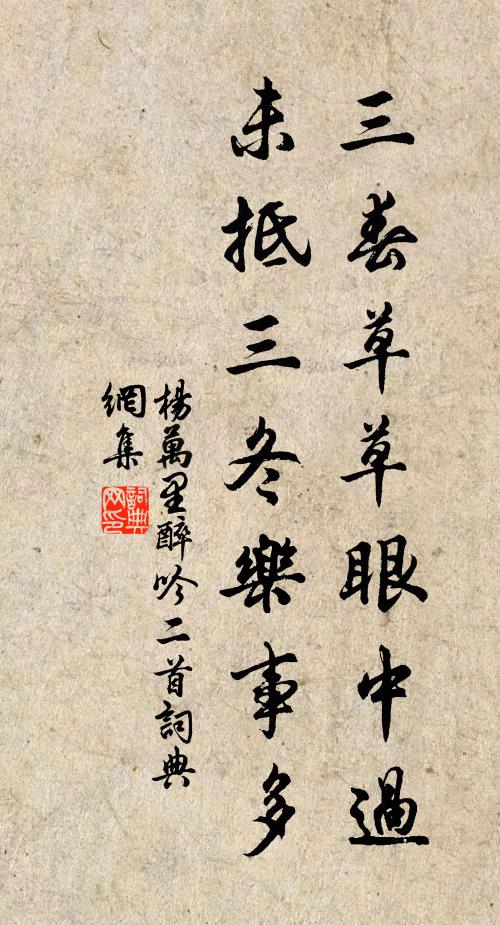 三春草草眼中過
未抵三冬樂事多
楊萬里醉吟二首詞典
網集
詞典
网印